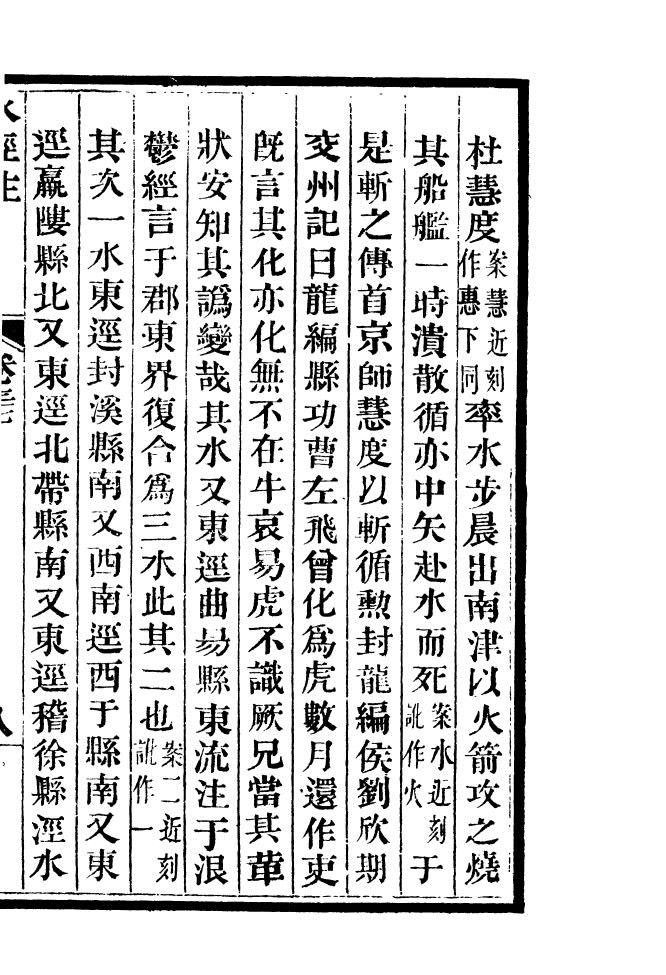 杜慧度案慧近刻作惠下同率水步晨出南津以火箭攻之燒
其船艦一時潰散循亦中矢赴水而死案水近刻訛作火于
是斬之傳首京師慧度以斬循勲封龍編侯劉欣期
交州記曰龍編縣功曹左飛曾化爲虎數月還作吏
旣言其化亦化無不在牛哀易虎不識厥兄當其革
狀安知其譌變哉其水又東逕曲昜縣東流注于浪
鬱經言于郡東界復合爲三水此其二也案二近刻訛作一
其次一水東逕封溪縣南又西南逕西于縣南又東
逕羸𨻻縣北又東逕北帶縣南又東逕稽徐縣涇水
水經注
卷三七
八